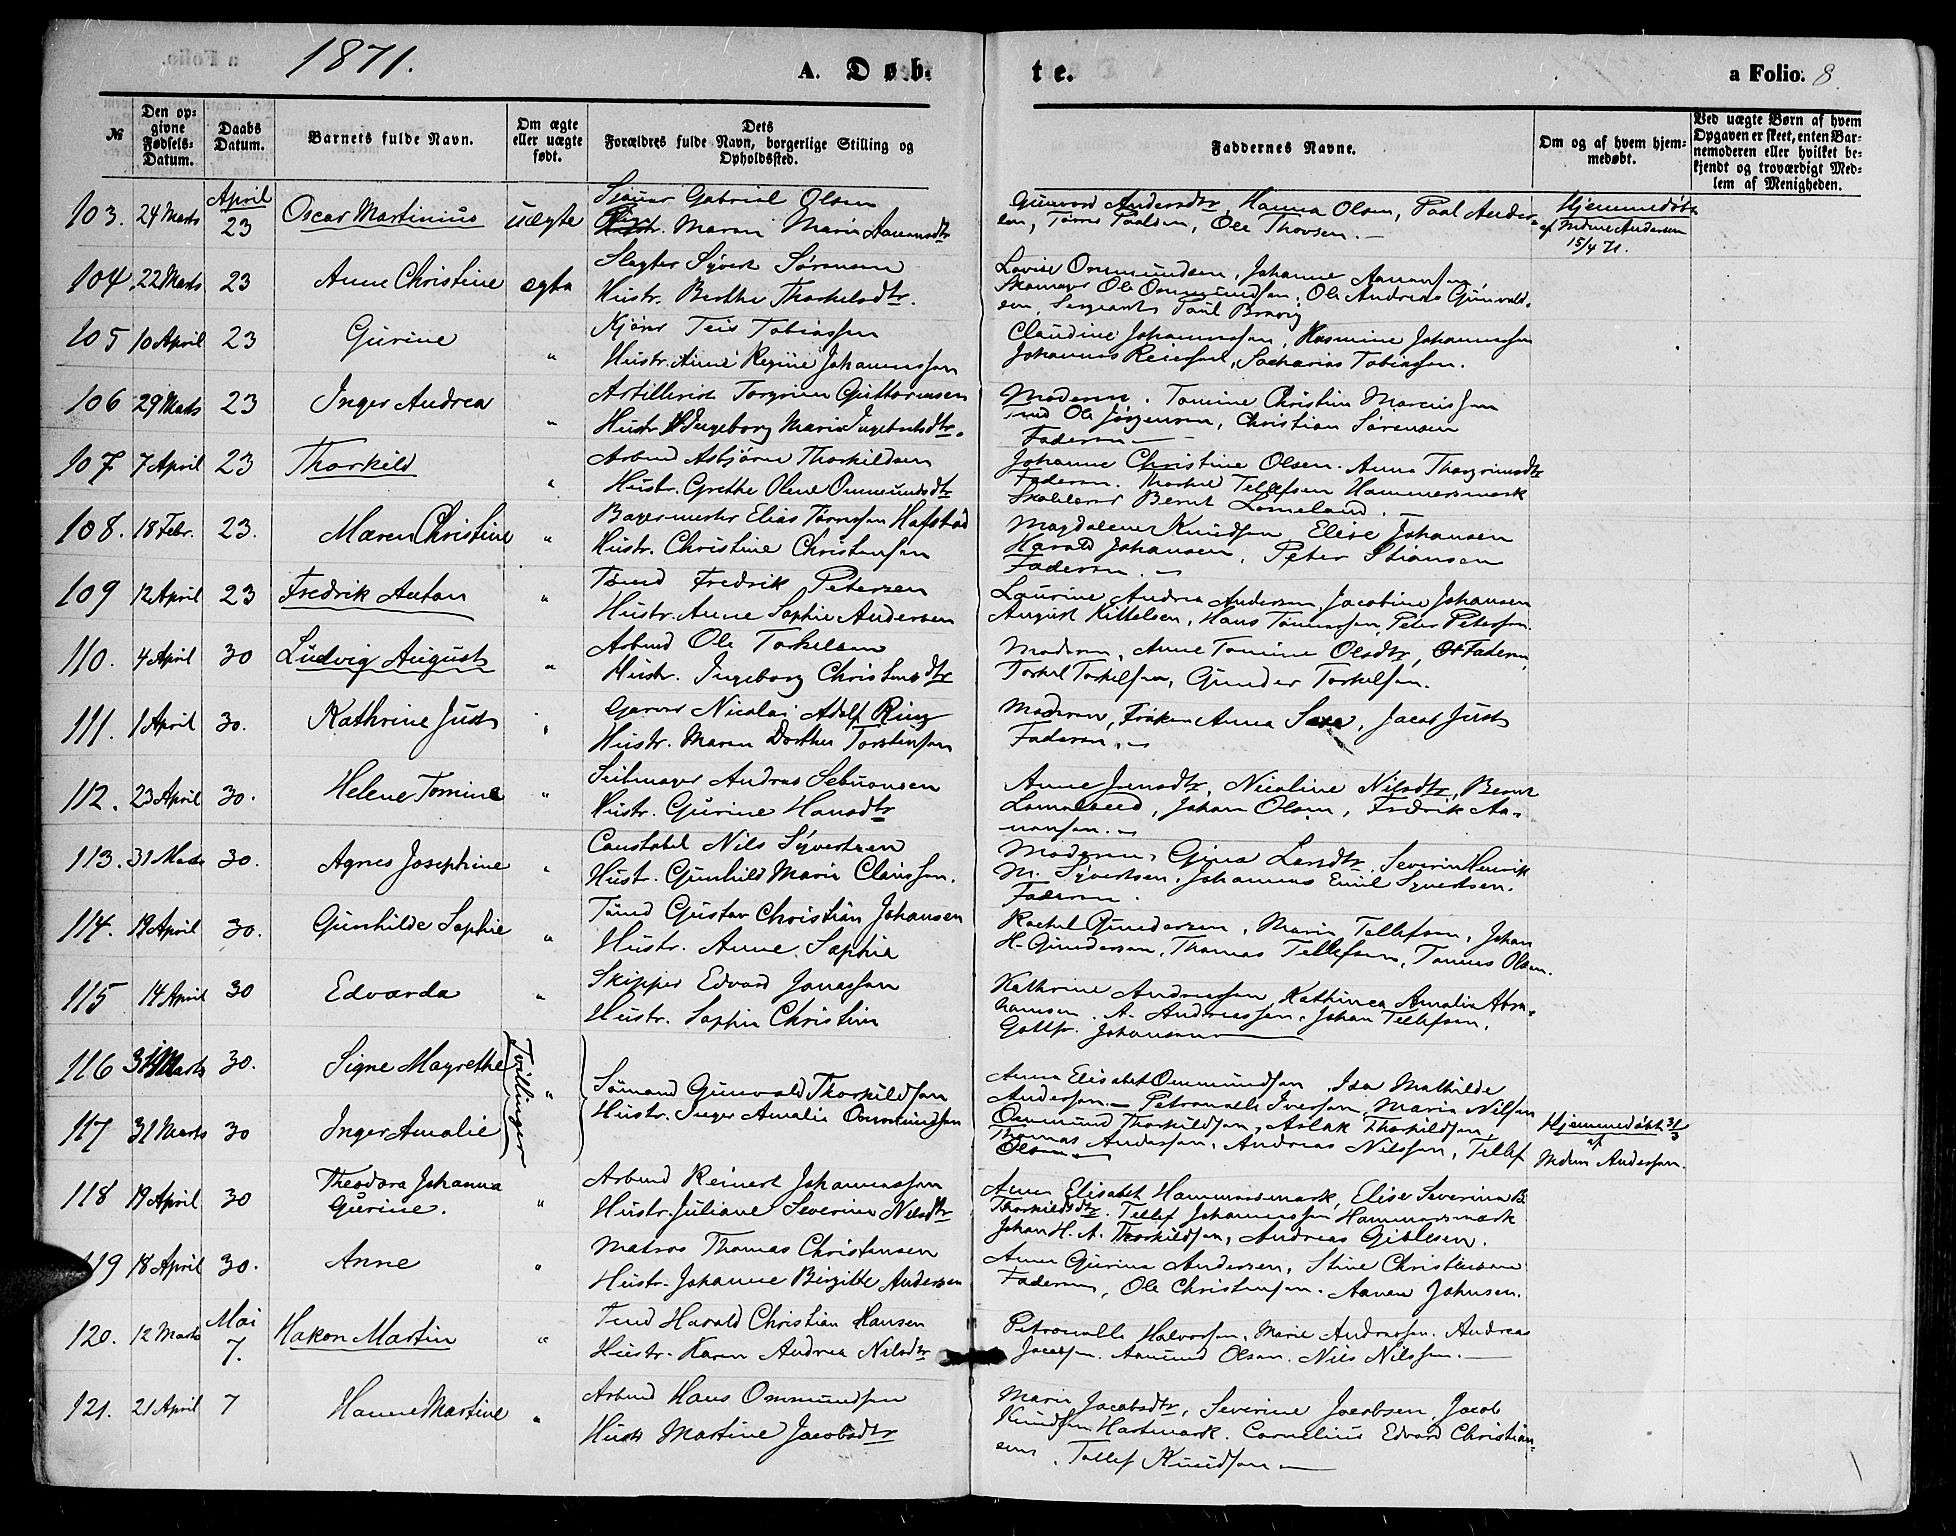 1871.
A. Døb-
te.
a Folio. 8.
№
Den op-
givne
Fødsels-
Datum.
Daabs
Datum.
Barnets fulde Navn.
Om ægte
eller uægte
født.
Dets
Forældres fulde Navn, borgerlige Stilling og
Opholdssted.
Faddernes Navne.
Om og af hvem hjem-
medøbt.
Ved uægte Børn af hvem
Opgaven er skeet, enten Bar-
nemoderen eller hvilket be-
kjendt og troværdigt Med-
lem af Menigheden.
103. 24 Marts April 23 Oscar Martinius uægte
Gabriel Olsen
Maren Marie
Gunvord Andersdtr, Hanna Olsen, Paal Ander-
sen, Paalsen, Ole Thorsen.
Hjemmedøbt
af Mdme Andersen
15/4 71.
104. 22 Marts 23 Anne Christine ægte
Slagter Sÿvert Sørensen
Hustr. Berthe Thorkelsdtr.
Lovise Ommundsen, Johanne Aanonsen,
Skomager Ole Ommundsen, Ole Andreas Gunvald-
sen, Sergeant Paul Braavig
105 10 April 23 Gurine "
Teis Tobiassen
Hustr. Anne Regine Johannssen
Claudine Johannessen, Rasmine Johannessen
Johannes Reiersen, Sacharias Tobiassen.
106 29 Marts 23 Inger Andrea "
Artillerist Torgrim Guttormsen
Hustr. Ingeborg Marie Ingebretsdtr.
Moderen. Tomine Christine Marcussen
Tmd Ole Jørgensen, Christian Sørensen
Faderen
107 7 April 23 Thorkild "
Arbmd Asbjørn Thorkildsen
Hustr. Grethe Olene Ommundsdtr
Johanne Christine Olsen. Anna Thorgrimsdtr
Faderen. Thorkel Tellefsen Hammersmark
Bernt Lomeland.
108. 18 Febr. 23. Maren Christine "
Bagermester Elias Tørressen Hafstad
Hustr. Christine Christensen
Magdalene Knudsen Elise Johansen
Harald Johansen, Peter Stiansen
Faderen.
109 12 April 23 Fredrik Anton "
Tømd Fredrik Petersen
Hustr. Anne Sophie Andersen
Laurine Andrea Andersen, Jacobine Johansen
August Kittelsen, Hans Tønnessen, Peter Petersen.
110. 4 April 30 Ludvig August "
Arbmd Ole Torkelsen
Hustr. Ingeborg Christensdtr
Moderen, Anne Tomine Olsdtr, Faderen,
Torkel Torkelsen, Gunder Torkelsen.
111. 1 April 30. Kathrine Just "
Garver Nicolai Adolf Ring
Hustr. Maren Dorthea Torstensen
Moderen, Frøken Anna Saxe, Jacob Just
Faderen.
112. 23 April 30. Helene Tomine "
Seilmager Andreas
Hustr. Gurine Hansdtr
Anne Jensdtr, Nicoline Nilsdtr, Bernt
Johan Olsen, Fredrik Aa-
nonsen.
113. 31 Marts 30. Agnes Josephine "
Constabel Nils Sÿvertsen
Hustr. Gunhild Marie Claussen.
Moderen, Gina Larsdtr. Severin Henrik
M. Sÿvertsen, Johannes Emil Syvertsen.
Faderen.
114. 19 April 30. Gunhilde Sophie "
Tømd Gustav Christian Johansen
Hustr. Anne Sophie
Rachel Gundersen, Maria Tellefsen, Johan
H. Gundersen, Thomas Tellefsen, Tønnes Olsen.
115 14 April 30 Edvarda "
Skipper Edvard Jonassen
Hustr. Sophie Christine
Kathrine Andreassen, Kathinca Amalia Abra-
hamsen. A. Andreassen. Johan Tellefsen,
Gottfr. Johansen
116 31 Marts 30. Signe Magrethe Tvillinger "
Sømand Gunvald Thorkildsen
Hustr. Inger Amalie Ommundsen
Anna Elisabet Ommundsen, Ida Mathilde
Andersen. Petronelle Iversen, Maria Nilsen
117 31 Marts 30 Inger Amalie
Ommund Thorkildsen, Aslak Thorkildsen
Thomas Andersen, Andreas Nilssen, Tellef
Olsen
Hjemmedøbt 31/3
af
Mdm Andersen.
118 19 April 30 Theodora Johanna
Gurine. "
Arbmd Reinert Johannessen
Hustr. Juliane Severine Nilsdtr
Anne Elisabet Hammersmark, Elise Severina B.
Thorkildsdtr. Tellef Johannessen Hammersmark
Johan H. A. Thorkildsen, Andreas Giblesen.
119 18 April 30. Anne "
Matros Thomas Christensen
Hustr. Johanne Birgitte Andersen
Anne Gurina Andersen, Stine Christensen
Faderen, Ole Christensen. Aanen Johnsen.
120. 12 Marts Mai 7. Hakon Martin "
Tmd Harald Christian Hansen
Hustr. Karen Andrea Nilsdtr
Petronelle Halvorsen, Marie Andreassen. Andreas
Jacobsen. Aamund Olsen. Nils Nilssen.
121. 21 April 7 Hanne Martine "
Arbmd Hans Ommundsen
Hustr Martine Jacobsdtr
Maria Jacobsdtr, Severine Jacobsen, Jacob
Knudsen Hartmark. Cornelius Edvard Christian-
sen, Tellef Knudsen